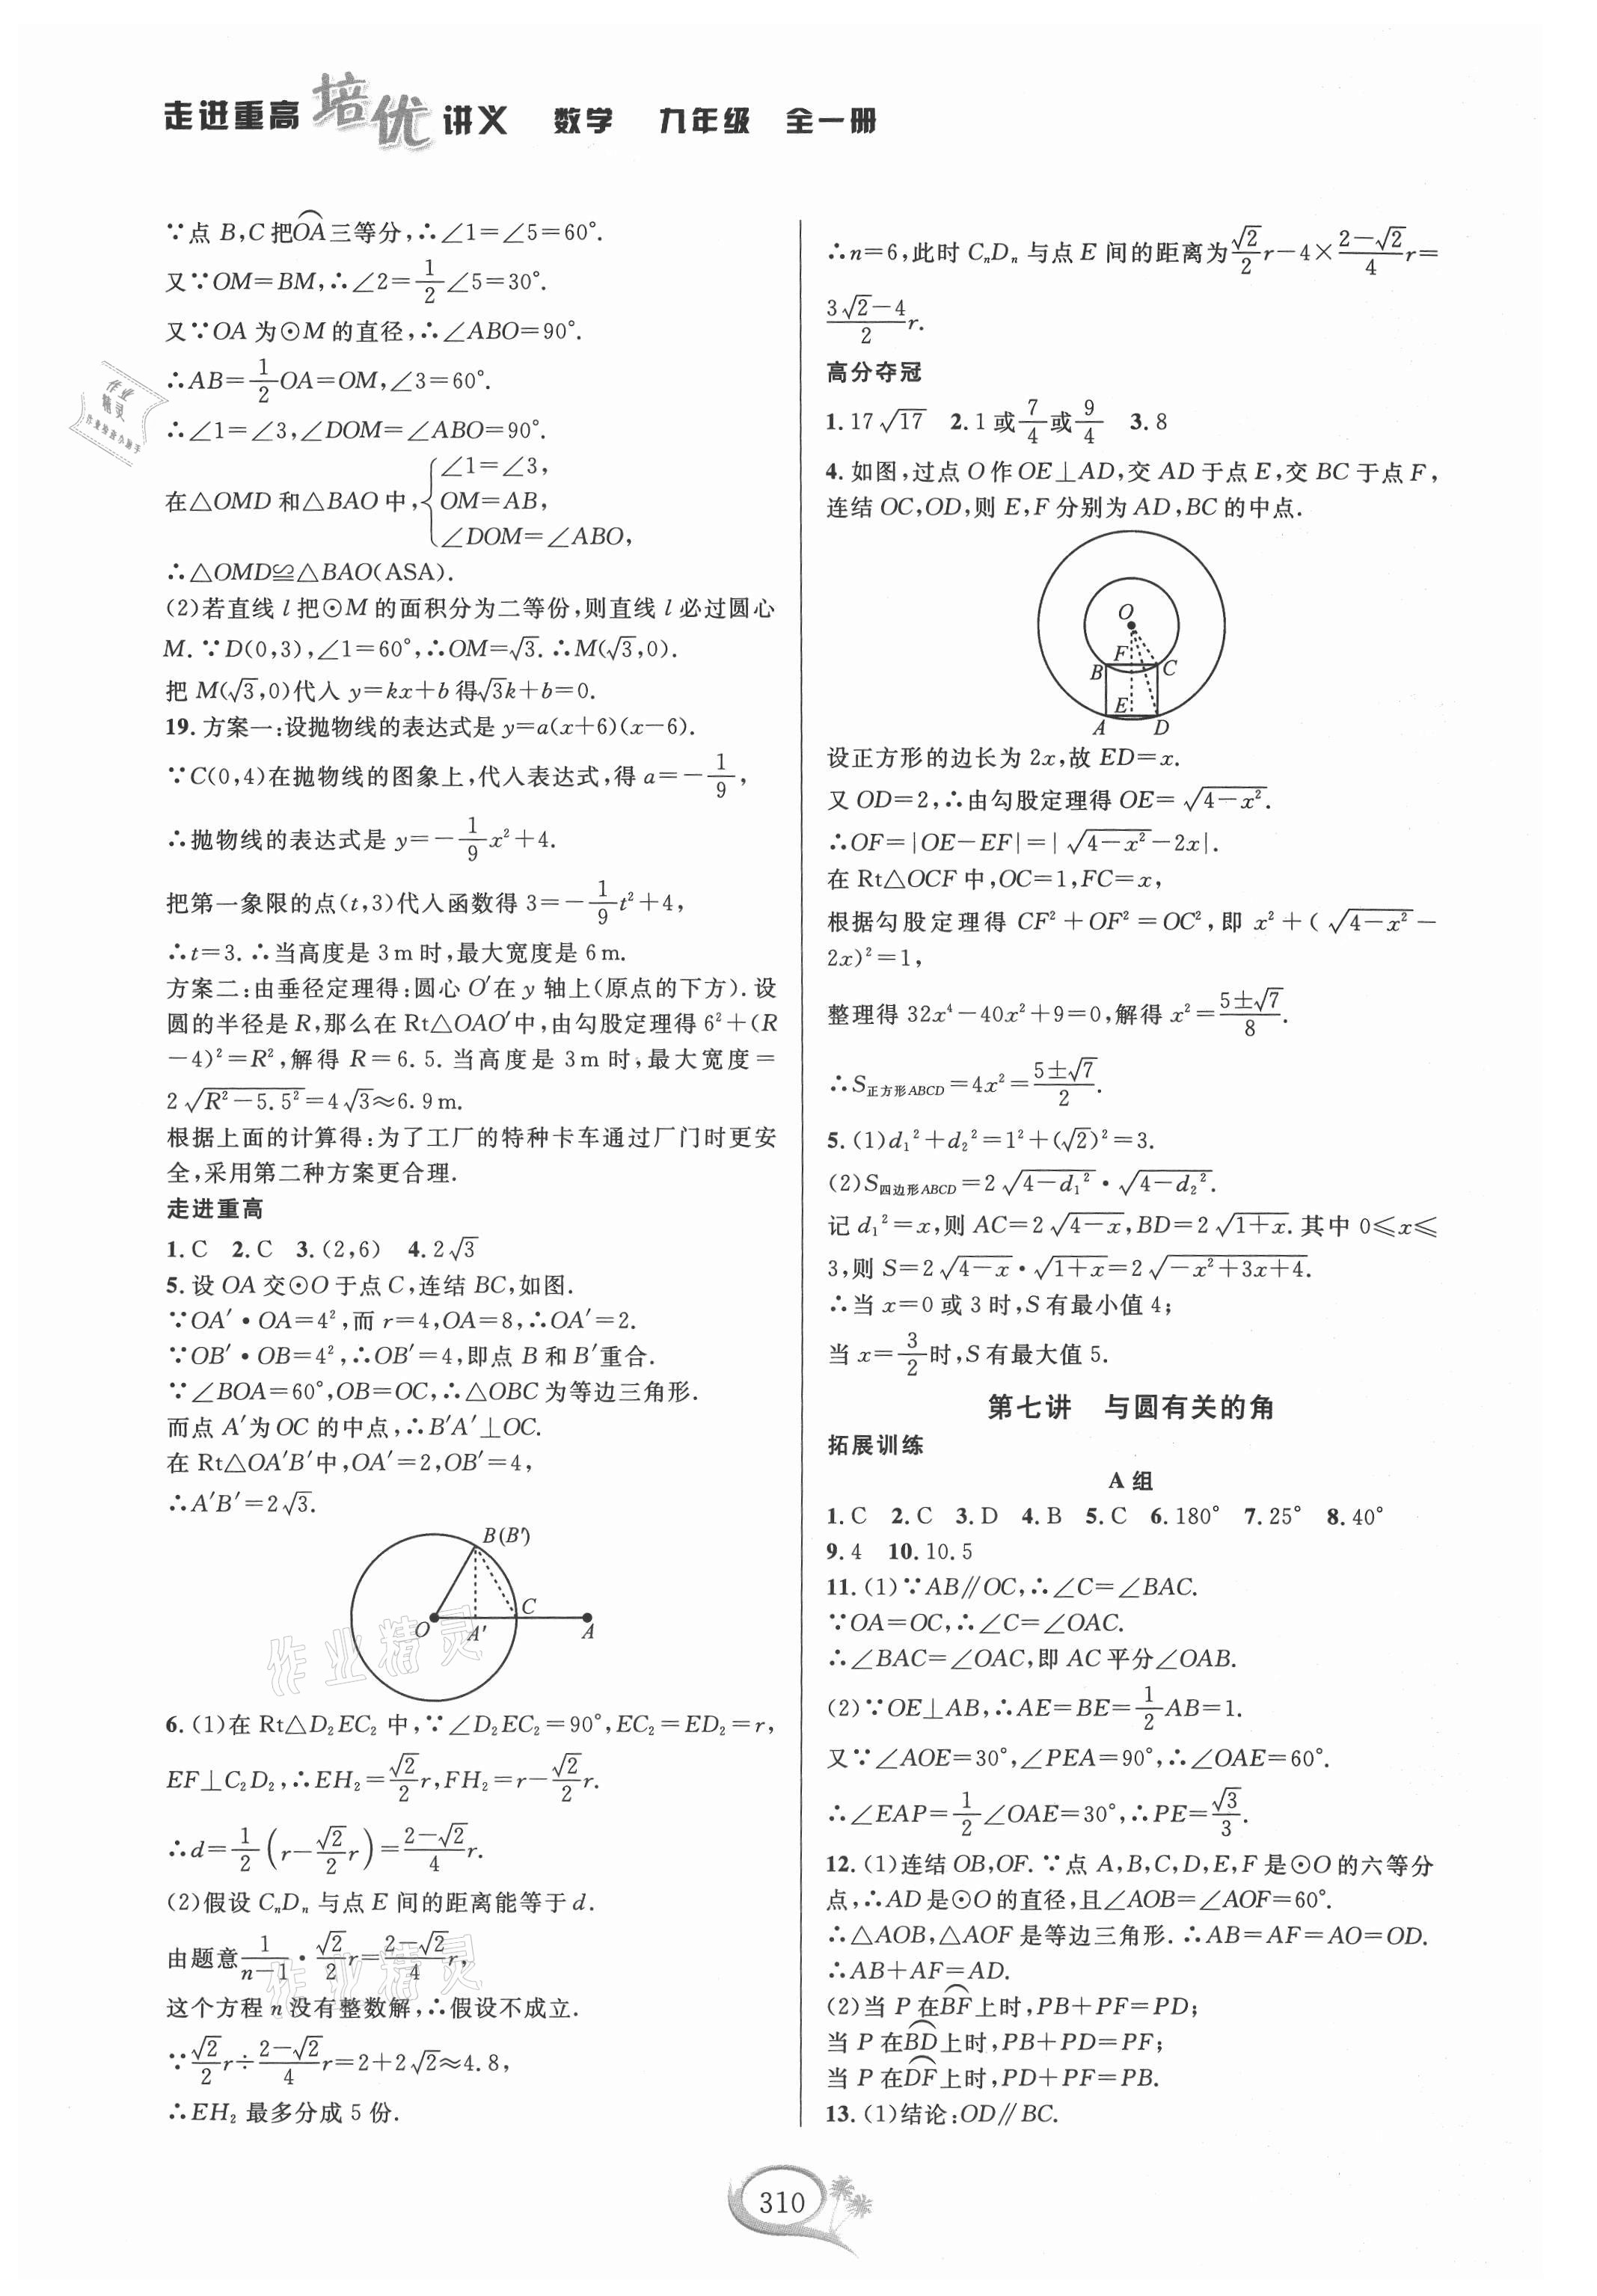 走进重高 培优 讲义 数学 九年级 全一册
∵点 B,C 把⌒OA三等分,∴∠1=∠5=60°.
又∵OM=BM,∴∠2=1/2∠5=30°.
又∵OA 为⊙M 的直径,∴∠ABO=90°.
∴AB=1/2OA=OM,∠3=60°.
∴∠1=∠3,∠DOM=∠ABO=90°.
在△OMD 和△BAO 中,{∠1=∠3,
OM=AB,
∠DOM=∠ABO,
∴△OMD≌△BAO(ASA).
(2)若直线 l 把⊙M 的面积分为二等份,则直线 l 必过圆心
M.∵D(0,3),∠1=60°,∴OM=√3.∴M(√3,0).
把 M(√3,0)代入 y=kx+b 得√3k+b=0.
19. 方案一:设抛物线的表达式是 y=a(x+6)(x-6).
∵C(0,4)在抛物线的图象上,代入表达式,得 a=-1/9,
∴抛物线的表达式是 y=-1/9x²+4.
把第一象限的点(t,3)代入函数得 3=-1/9t²+4,
∴t=3.∴当高度是 3 m 时,最大宽度是 6 m.
方案二:由垂径定理得:圆心 O′在 y 轴上(原点的下方).设
圆的半径是 R,那么在 Rt△OAO′中,由勾股定理得 6²+(R
-4)²=R²,解得 R=6.5.当高度是 3 m 时,最大宽度=
2√(R²-5.5²)=4√3≈6.9 m.
根据上面的计算得:为了工厂的特种卡车通过厂门时更安
全,采用第二种方案更合理.
走进重高
1. C 2. C 3. (2,6) 4. 2√3
5. 设 OA 交⊙O 于点 C,连结 BC,如图.
∵OA′·OA=4²,而 r=4,OA=8,∴OA′=2.
∵OB′·OB=4²,∴OB′=4,即点 B 和 B′重合.
∵∠BOA=60°,OB=OC,∴△OBC 为等边三角形.
而点 A′为 OC 的中点,∴B′A′⊥OC.
在 Rt△OA′B′中,OA′=2,OB′=4,
∴A′B′=2√3.
B(B′)
C
O A′ A
6. (1)在 Rt△D₂EC₂ 中,∵∠D₂EC₂=90°,EC₂=ED₂=r,
EF⊥C₂D₂,∴EH₂=√2/2 r,FH₂=r-√2/2 r.
∴d=1/2(r-√2/2 r)=(2-√2)/4 r.
(2)假设 CₙDₙ 与点 E 间的距离能等于 d.
由题意1/(n-1)·√2/2 r=(2-√2)/4 r,
这个方程 n 没有整数解,∴假设不成立.
∵√2/2 r÷(2-√2)/4 r=2+2√2≈4.8,
∴EH₂ 最多分成 5 份.
∴n=6,此时 CₙDₙ 与点 E 间的距离为√2/2 r-4×(2-√2)/4 r=
(3√2-4)/2 r.
高分夺冠
1. 17√17 2. 1 或7/4或9/4 3. 8
4. 如图,过点 O 作 OE⊥AD,交 AD 于点 E,交 BC 于点 F,
连结 OC,OD,则 E,F 分别为 AD,BC 的中点.
O
F
B C
E
A D
设正方形的边长为 2x,故 ED=x.
又 OD=2,∴由勾股定理得 OE=√(4-x²).
∴OF=|OE-EF|=|√(4-x²)-2x|.
在 Rt△OCF 中,OC=1,FC=x,
根据勾股定理得 CF²+OF²=OC²,即 x²+(√(4-x²)-
2x)²=1,
整理得 32x⁴-40x²+9=0,解得 x²=(5±√7)/8.
∴S正方形ABCD=4x²=(5±√7)/2.
5. (1)d₁²+d₂²=1²+(√2)²=3.
(2)S四边形ABCD=2√(4-d₁²)·√(4-d₂²).
记 d₁²=x,则 AC=2√(4-x),BD=2√(1+x).其中 0≤x≤
3,则 S=2√(4-x)·√(1+x)=2√(-x²+3x+4).
∴当 x=0 或 3 时,S 有最小值 4;
当 x=3/2时,S 有最大值 5.
第七讲 与圆有关的角
拓展训练
A 组
1. C 2. C 3. D 4. B 5. C 6. 180° 7. 25° 8. 40°
9. 4 10. 10.5
11. (1)∵AB∥OC,∴∠C=∠BAC.
∵OA=OC,∴∠C=∠OAC.
∴∠BAC=∠OAC,即 AC 平分∠OAB.
(2)∵OE⊥AB,∴AE=BE=1/2AB=1.
又∵∠AOE=30°,∠PEA=90°,∴∠OAE=60°.
∴∠EAP=1/2∠OAE=30°,∴PE=√3/3.
12. (1)连结 OB,OF.∵点 A,B,C,D,E,F 是⊙O 的六等分
点,∴AD 是⊙O 的直径,且∠AOB=∠AOF=60°.
∴△AOB,△AOF 是等边三角形.∴AB=AF=AO=OD.
∴AB+AF=AD.
(2)当 P 在⌒BF上时,PB+PF=PD;
当 P 在⌒BD上时,PB+PD=PF;
当 P 在⌒DF上时,PD+PF=PB.
13. (1)结论:OD∥BC.
310
作业精灵
作业精灵
作业精灵